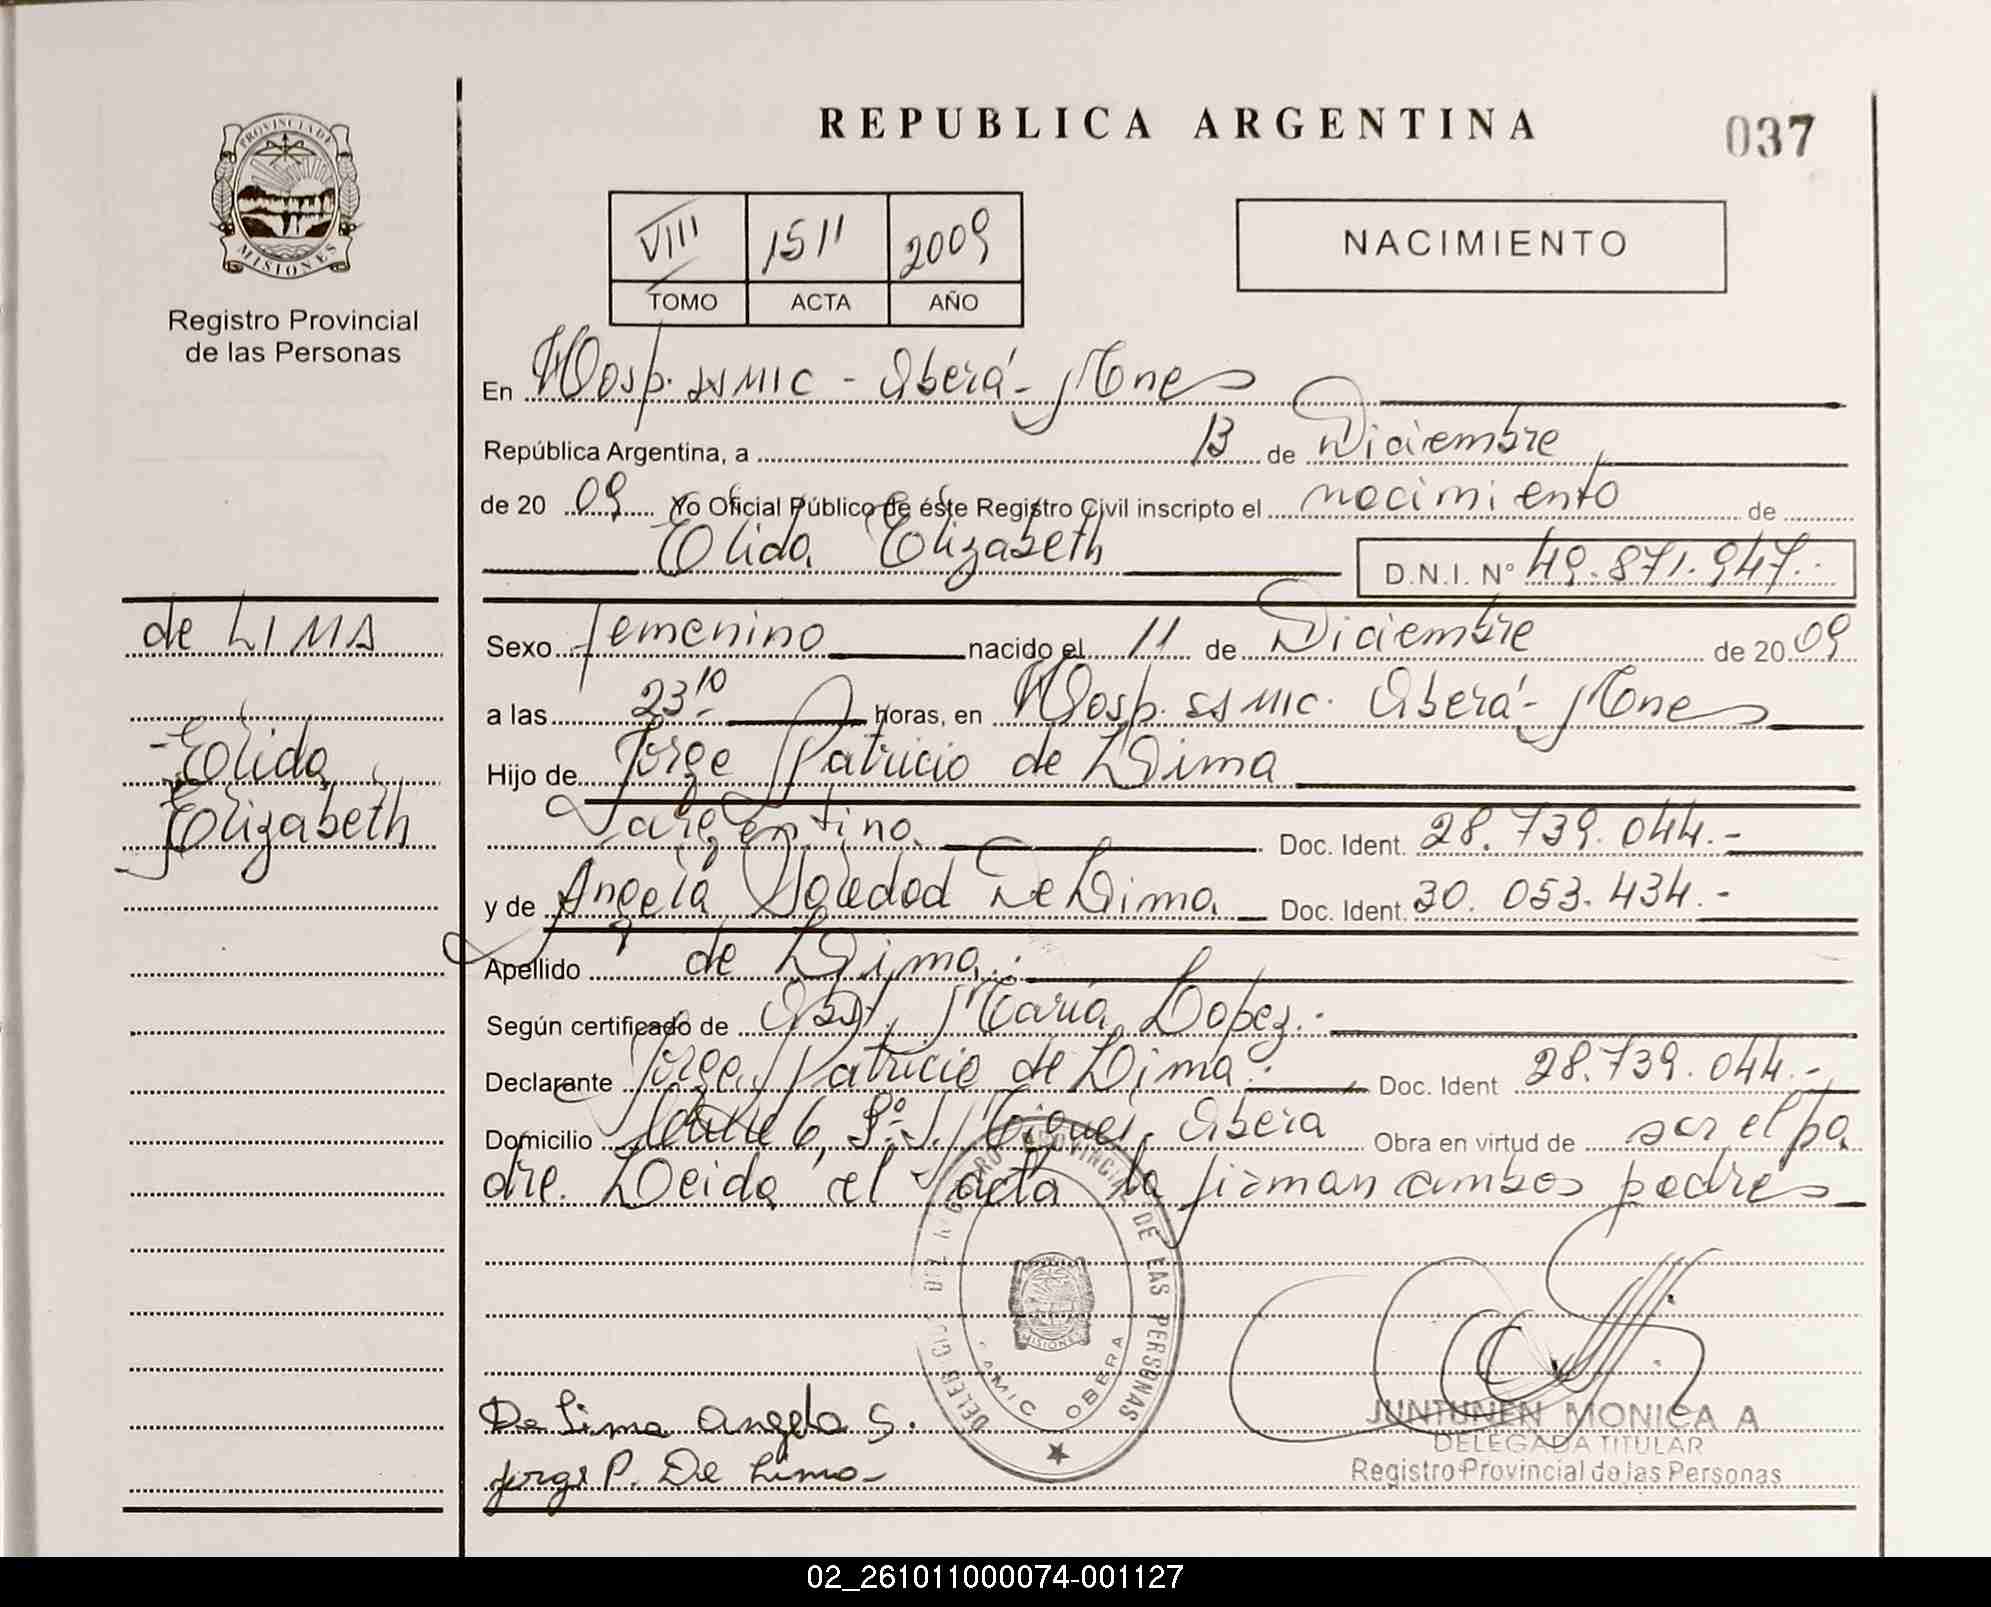 REPUBLICA ARGENTINA
037
PROVINCIA DE
MISIONES
Registro Provincial
de las Personas
VIII 1511 2009
TOMO ACTA AÑO
NACIMIENTO
En Hosp. SAMIC - Oberá - Mnes
República Argentina, a 13 de Diciembre
de 20 09 Yo Oficial Público de éste Registro Civil inscripto el nacimiento de
Elida Elizabeth D.N.I. N° 49.871.947.-
de LIMA
Elida
Elizabeth
Sexo femenino nacido el 11 de Diciembre de 20 09
a las 23 10 horas, en Hosp. SAMIC. Oberá - Mnes
Hijo de Jorge Patricio de Lima
argentino Doc. Ident. 28.739.044.-
y de Angela Soledad De Lima Doc. Ident. 30.053.434.-
Apellido de Lima.-
Según certificado de Obst, María Lopez.-
Declarante Jorge Patricio de Lima.- Doc. Ident 28.739.044.-
Domicilio 6, Bº S. Miguel, Oberá Obra en virtud de ser el pa
dre. Leida el acta la firman ambos padres
DE LAS PERSONAS
SAMIC OBERA
MISIONES
De Lima Angela S.
Jorge P. De Lima
JUNTUNEN MONICA A
DELEGADA TITULAR
Registro Provincial de las Personas
02_261011000074-001127